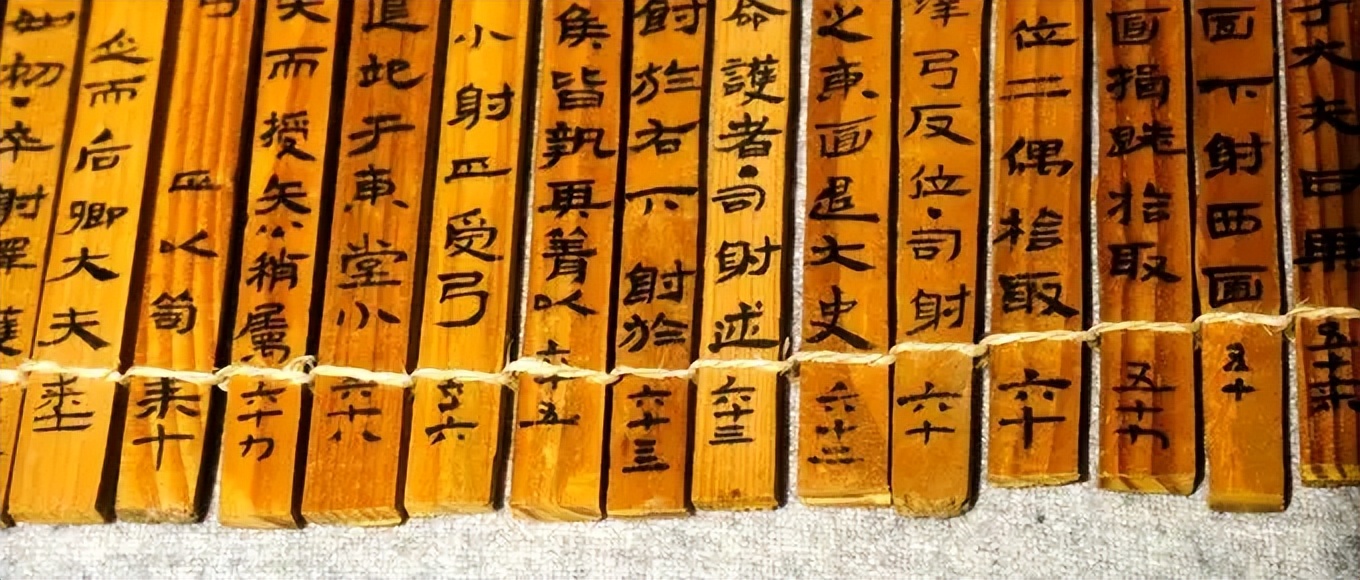 大夫曰與 五十桼
面下射西面 五十
面揖拾取 五十九
位二偶拾取 六十
弓反位·司射 六十
之東面退大史 六十二
命護者·司射述 六十三
射於右下射於 六十亖
矦皆執其菁以 六十五
小射正受弓 六十六
退妃于東堂小 六十八
矢而授矢公稍屬 六十九
弓 正以笥 桼十
公而后卿大夫 桼十一
如初·卒射